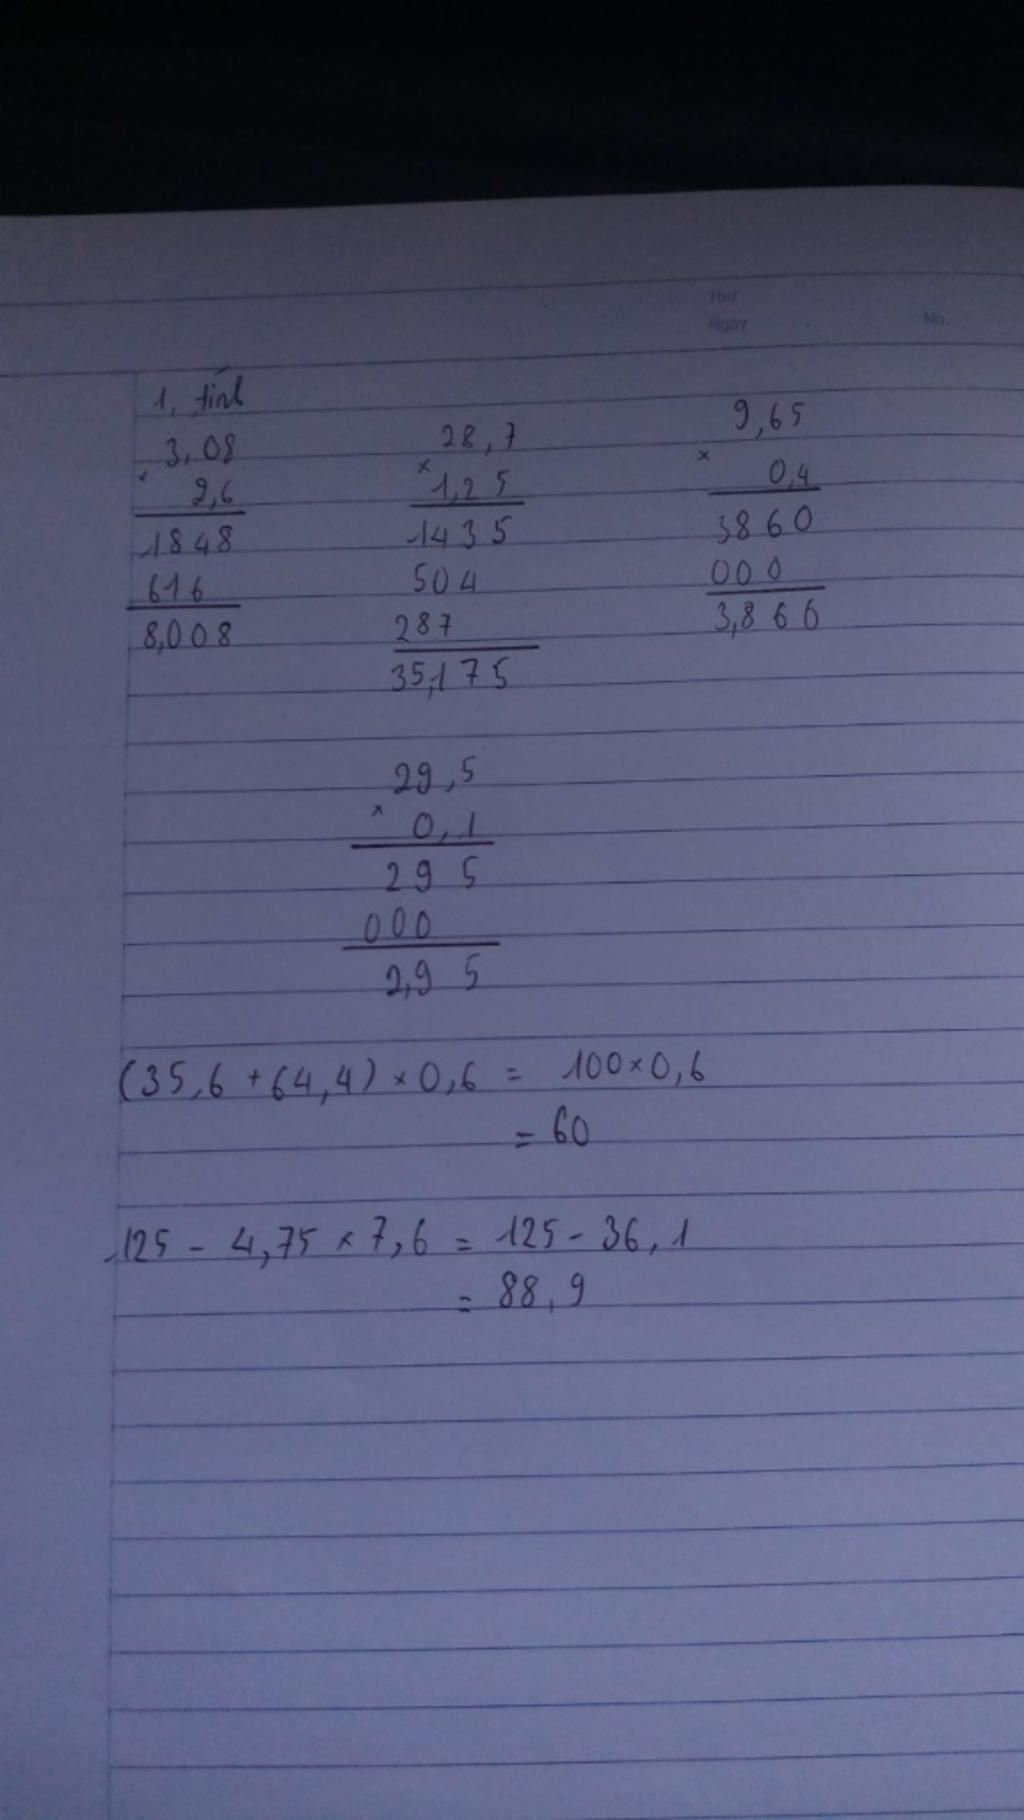 Thứ
Ngày
No.
1, tính
3,08
×
2,6
1848
616
8,008
28,7
×
1,25
1435
504
287
35,175
9,65
×
0,4
3860
000
3,860
29,5
×
0,1
295
000
2,95
(35,6 + 64,4) × 0,6 = 100 × 0,6
= 60
125 - 4,75 × 7,6 = 125 - 36,1
= 88,9